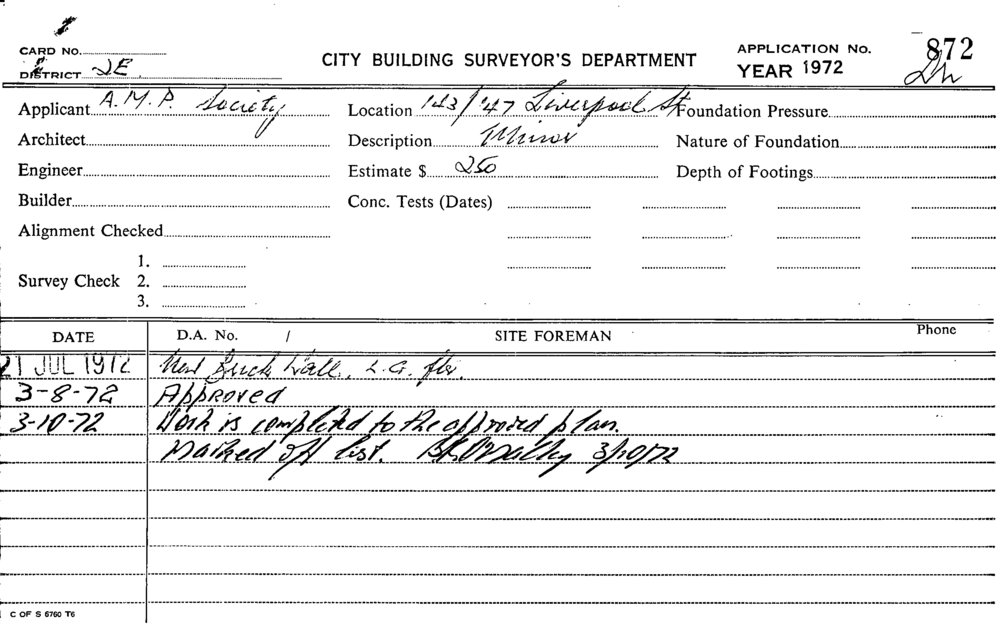 CARD NO.
CITY BUILDING SURVEYOR'S DEPARTMENT
APPLICATION No. 872
DISTRICT 2E
YEAR 1972
Applicant A.M.P. Society
Location 143/'47 Liverpool St
Foundation Pressure
Architect
Description Minor
Nature of Foundation
Engineer
Estimate $ 250
Depth of Footings
Builder
Conc. Tests (Dates)
Alignment Checked
Survey Check
1.
2.
3.
DATE D.A. No. / SITE FOREMAN Phone
21 JUL 1972 New Brick Wall, L.G. flr.
3-8-72 Approved
3-10-72 Work is completed to the approved plan.
Marked off list. 3/10/72
C OF S 6760 T6